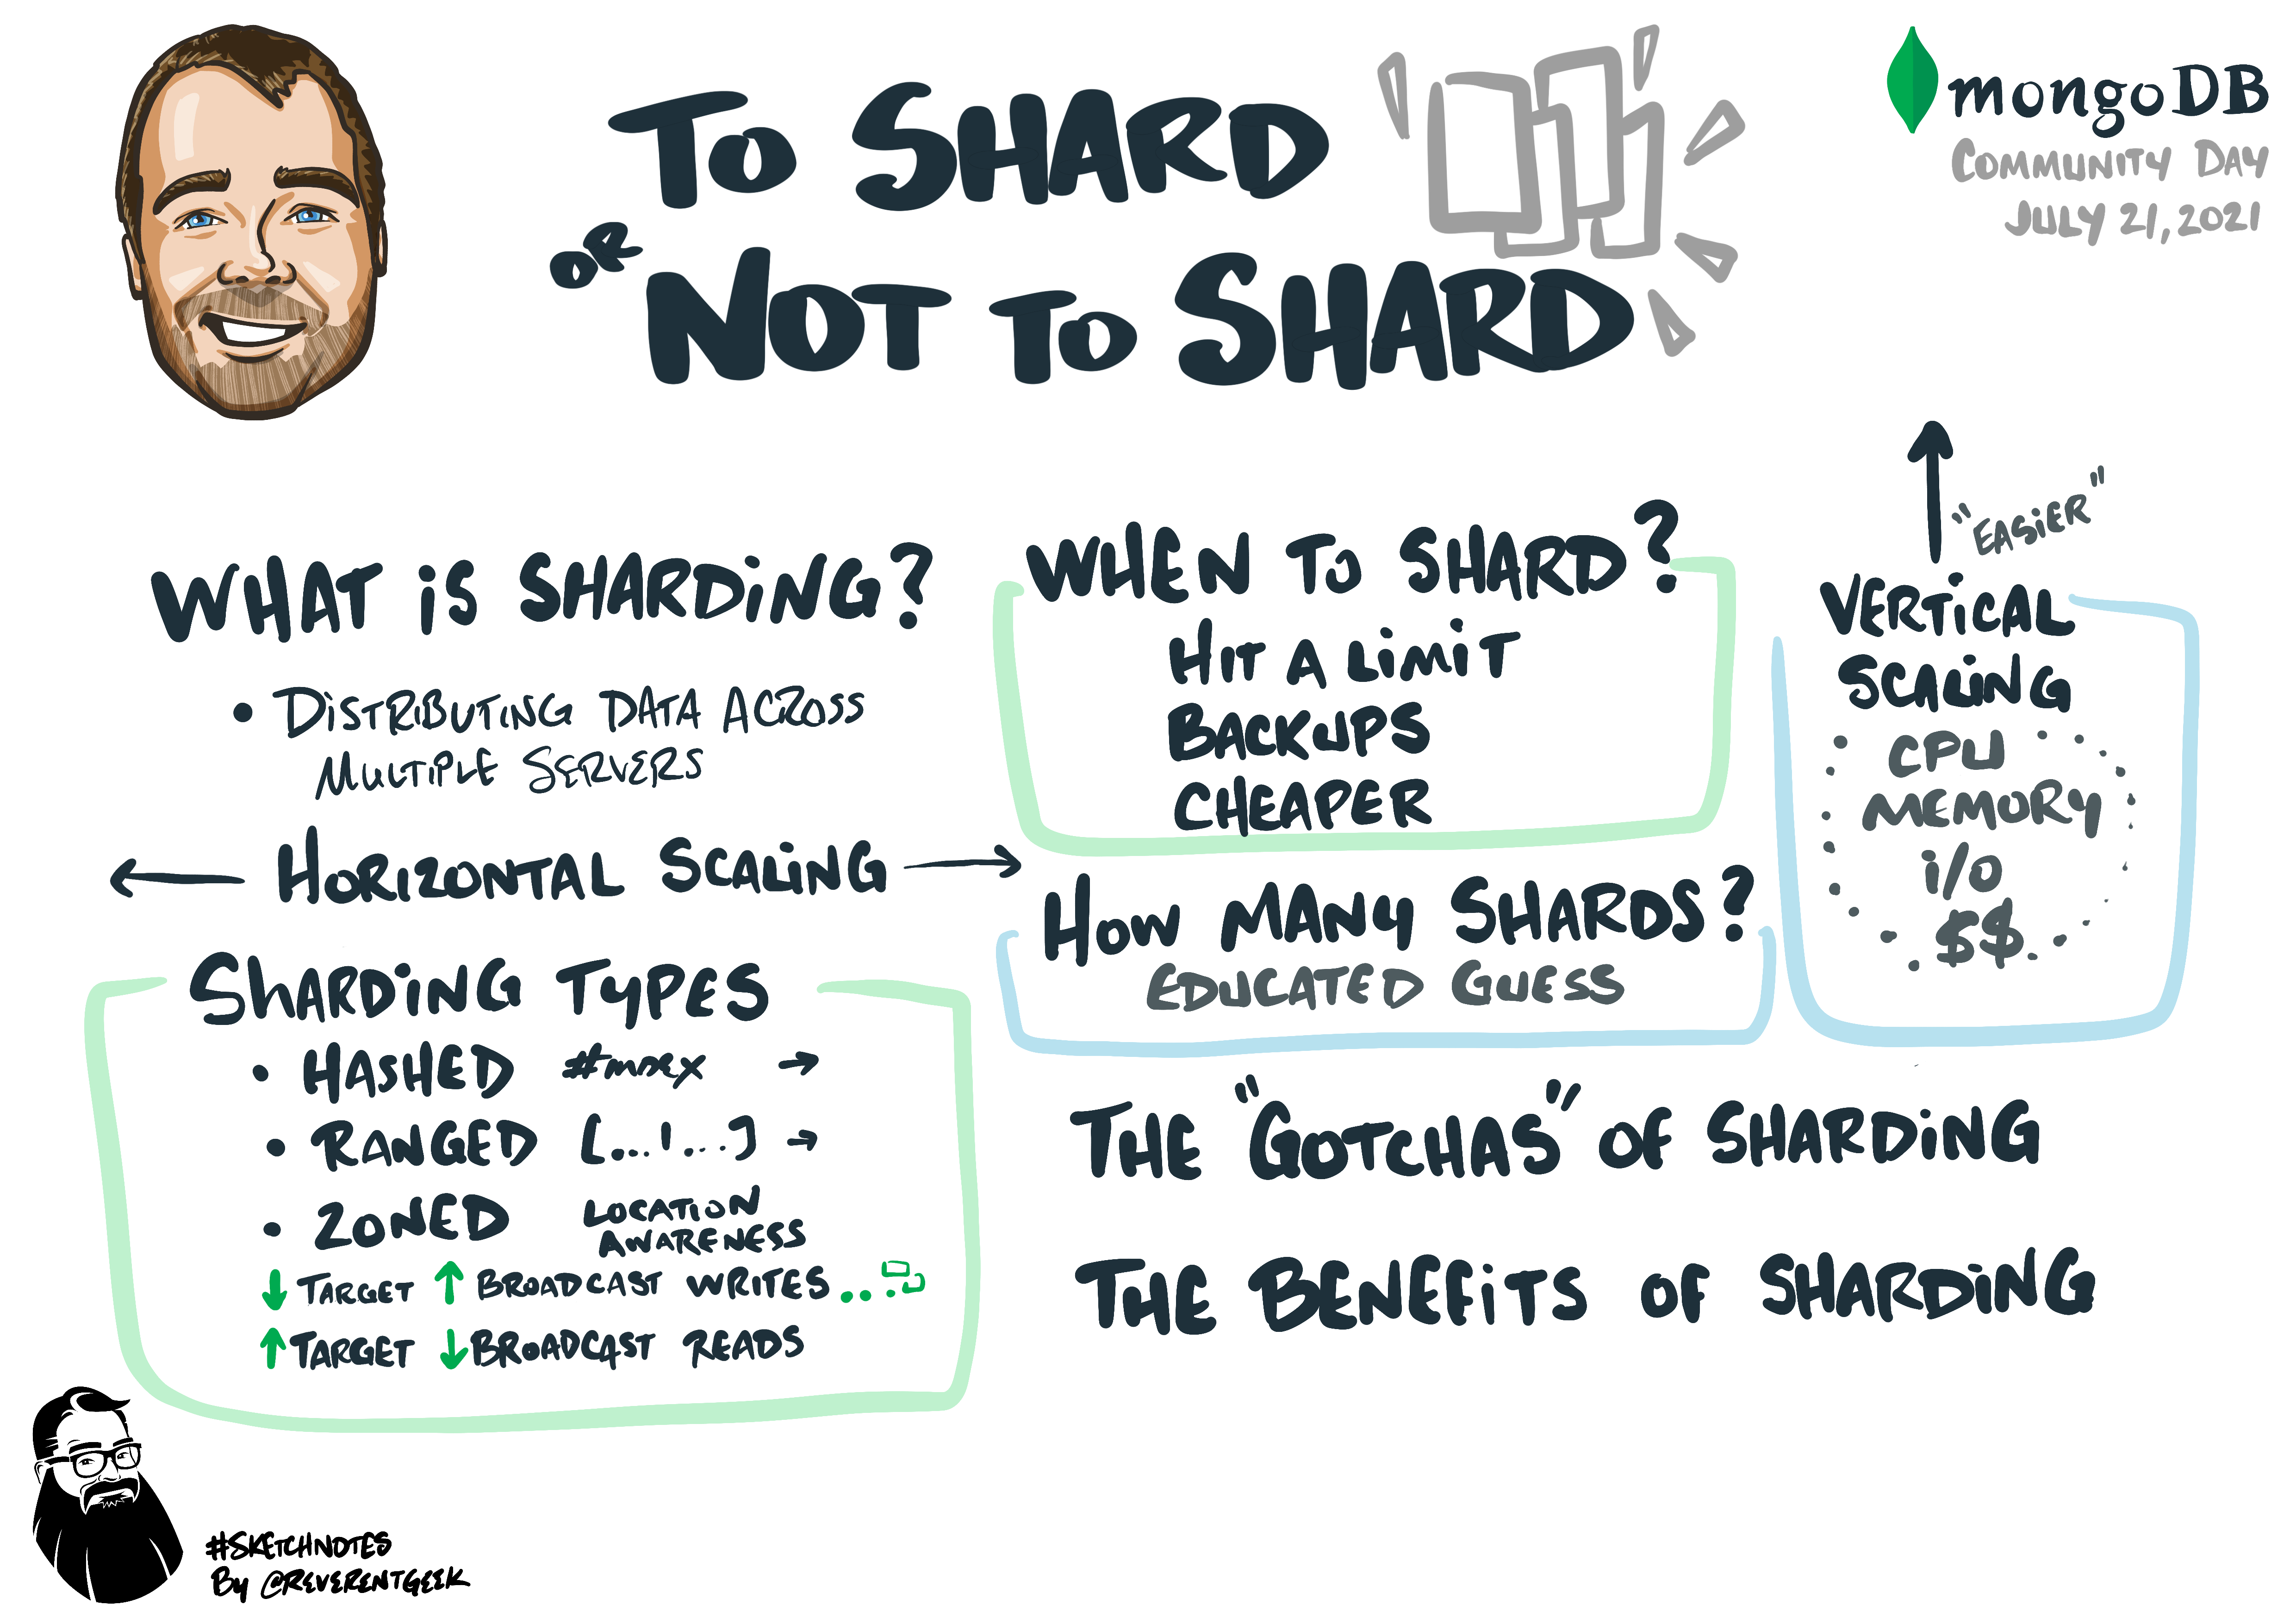 To SHARD
OR NOT To SHARD
mongoDB
COMMUNITY DAY
JULY 21, 2021
WHAT iS SHARDiNG?
• DiSTRIBUTING DATA ACROSS
MULTIPLE SERVERS
HORIZONTAL SCALiNG
SHARDiNG TYPES
• HASHED #INDEX →
• RANGED [...|...] →
• ZONED LOCATION
AWARENESS
↓ TARGET ↑ BROADCAST WRITES...
↑ TARGET ↓ BROADCAST READS
WHEN To SHARD?
HIT A LiMiT
BACKUPS
CHEAPER
HOW MANY SHARDS?
EDUCATED GUESS
"EASiER"
VERTiCAL
SCALiNG
CPU
MEMORY
i/o
$$
THE "GOTCHAS" OF SHARDiNG
THE BENEFiTS OF SHARDiNG
#SKETCHNOTES
By @REVERENTGEEK